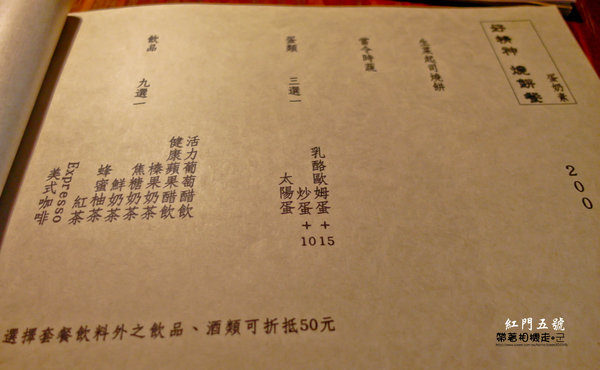 好精神 燒餅餐
蛋奶素
200
生菜起司燒餅
當令時蔬
蛋類 三選一
乳酪歐姆蛋+15
炒蛋+10
太陽蛋
飲品 九選一
活力葡萄醋飲
健康蘋果醋飲
榛果奶茶
焦糖奶茶
鮮奶茶
蜂蜜柚茶
紅茶
Expresso
美式咖啡
選擇套餐飲料外之飲品、酒類可折抵50元
紅門五號
帶著相機走